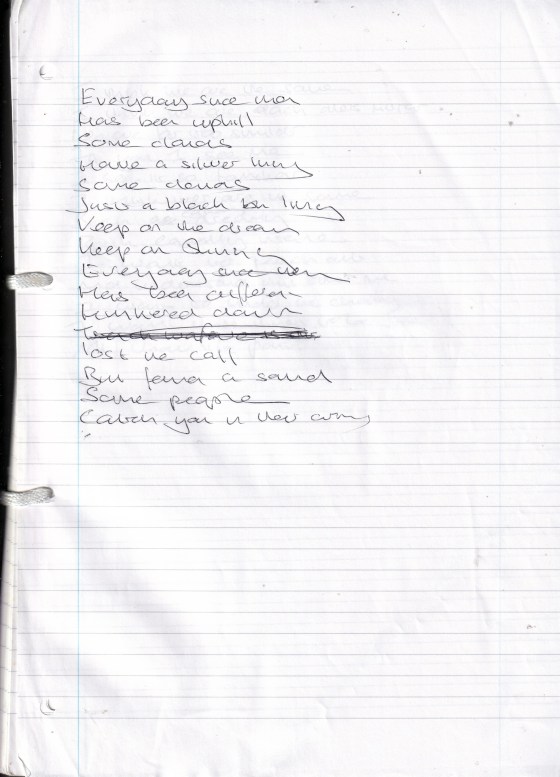 Everyday since then
Has been uphill
Some clouds
Have a silver lining
Some clouds
Just a black lining
Keep on the dream
Keep on
Everyday since then
Has been different
Hunkered down
lost the call
But found a sound
Some people
Catch you in their